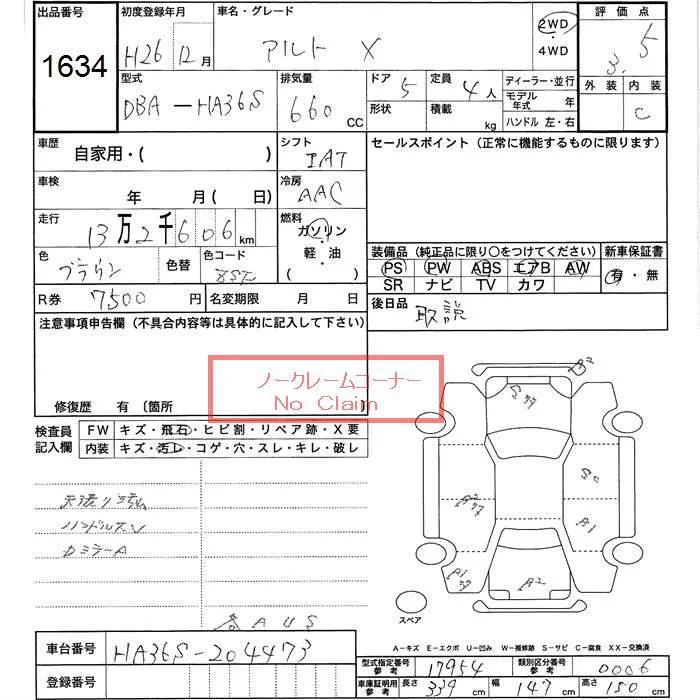 出品番号 初度登録年月 車名・グレード 2WD 評価点
1634 H26年12月 アルト X 4WD 3.5
型式 排気量 ドア 定員 ディーラー・並行 外装 内装
DBA-HA36S 660 CC 5 4人 モデル年式 年 C
形状 積載 kg ハンドル 左・右
車歴 シフト セールスポイント (正常に機能するものに限ります)
自家用・( ) IAT
車検 冷房
年 月 ( 日) AAC
走行 燃料
13万2千606km ガソリン・軽・油 ( )
装備品 (純正品に限り○をつけてください) 新車保証書
色 色替 色コード PS PW ABS エアB AW 有・無
ブラウン SR ナビ TV カワ
R券 7500円 名変期限 月 日 後日品 取説
注意事項申告欄 (不具合内容等は具体的に記入して下さい)
ノークレームコーナー
No Claim
修復歴 有 (箇所 )
検査員記入欄 FW キズ・飛石・ヒビ割・リペア跡・X要
内装 キズ・汚レ・コゲ・穴・スレ・キレ・破レ
A2
Sｱｱ
Sc
A1
A1
A2
ハンドルスレ
スペア
A-キズ E-エクボ U-凹み W-補修跡 S-サビ C-腐食 XX-交換済
車台番号 HA36S-204473
登録番号
型式指定番号参考 17954 類別区分番号参考 0006
車庫証明用参考 長さ 339cm 幅 147cm 高さ 150cm